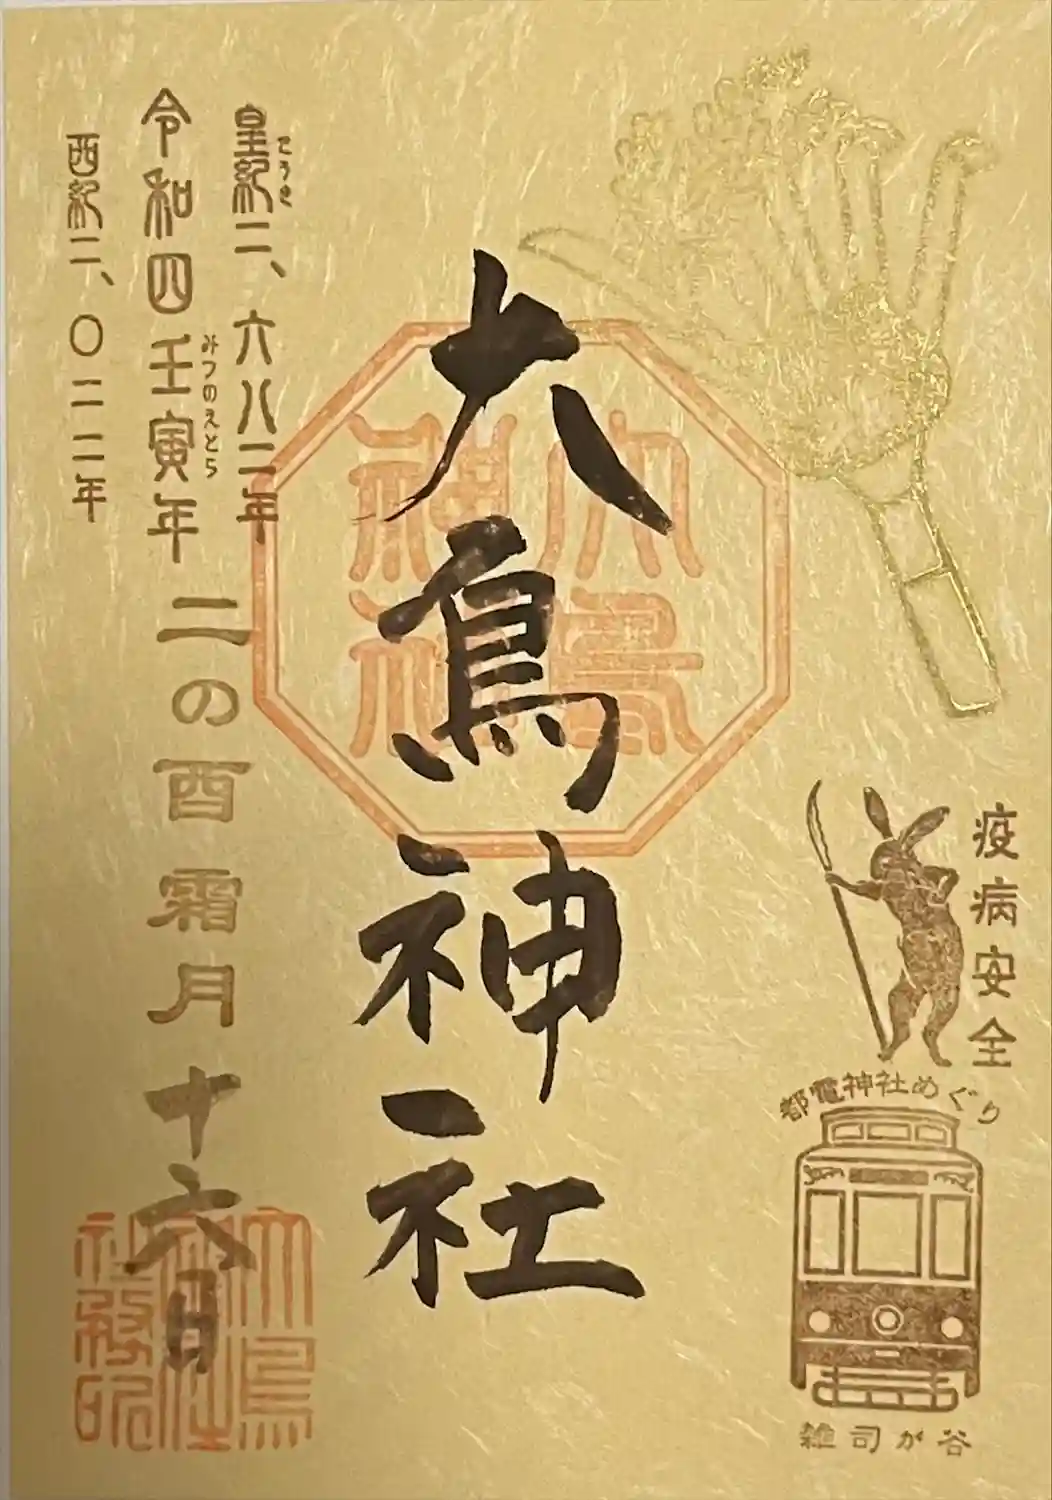 疫病安全
都電神社めぐり
雑司が谷
大鳥神社
大鳥神社
皇紀二、六八二年
こうき
令和四壬寅年
みづのえとら
二の酉霜月十六日
西紀二、〇二二年
大鳥神社社務所印